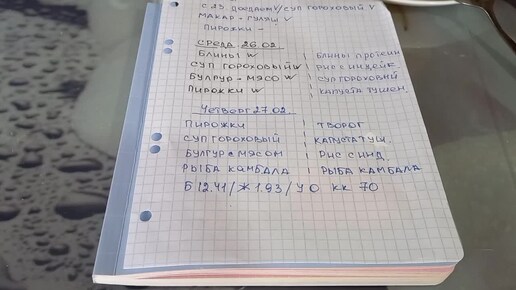 суп гороховый V
МАКАР - ГУЛЯШ V
ПИРОЖКИ -
СРЕДА 26.02
БЛИНЫ W | БЛИНЫ ПРОТЕИН
СУП ГОРОХОВЫЙ W | РИС С ИНДЕЙК.
БУЛГУР - МЯСО W | СУП ГОРОХОВЫЙ
ПИРОЖКИ W | КАПУСТА ТУШЕН.
ЧЕТВЕРГ 27.02
ПИРОЖКИ | ТВОРОГ
СУП ГОРОХОВЫЙ | КАПУСТА ТУШ.
БУЛГУР с МЯСОМ | РИС С ИНД.
РЫБА КАМБАЛА | РЫБА КАМБАЛА
Б 12.41 / Ж 1.93 / У 0 КК 70